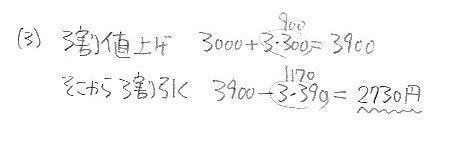 900
(3) 3割値上げ 3000+3・300=3900
1170
そこから3割引く 3900-3・390=2730円